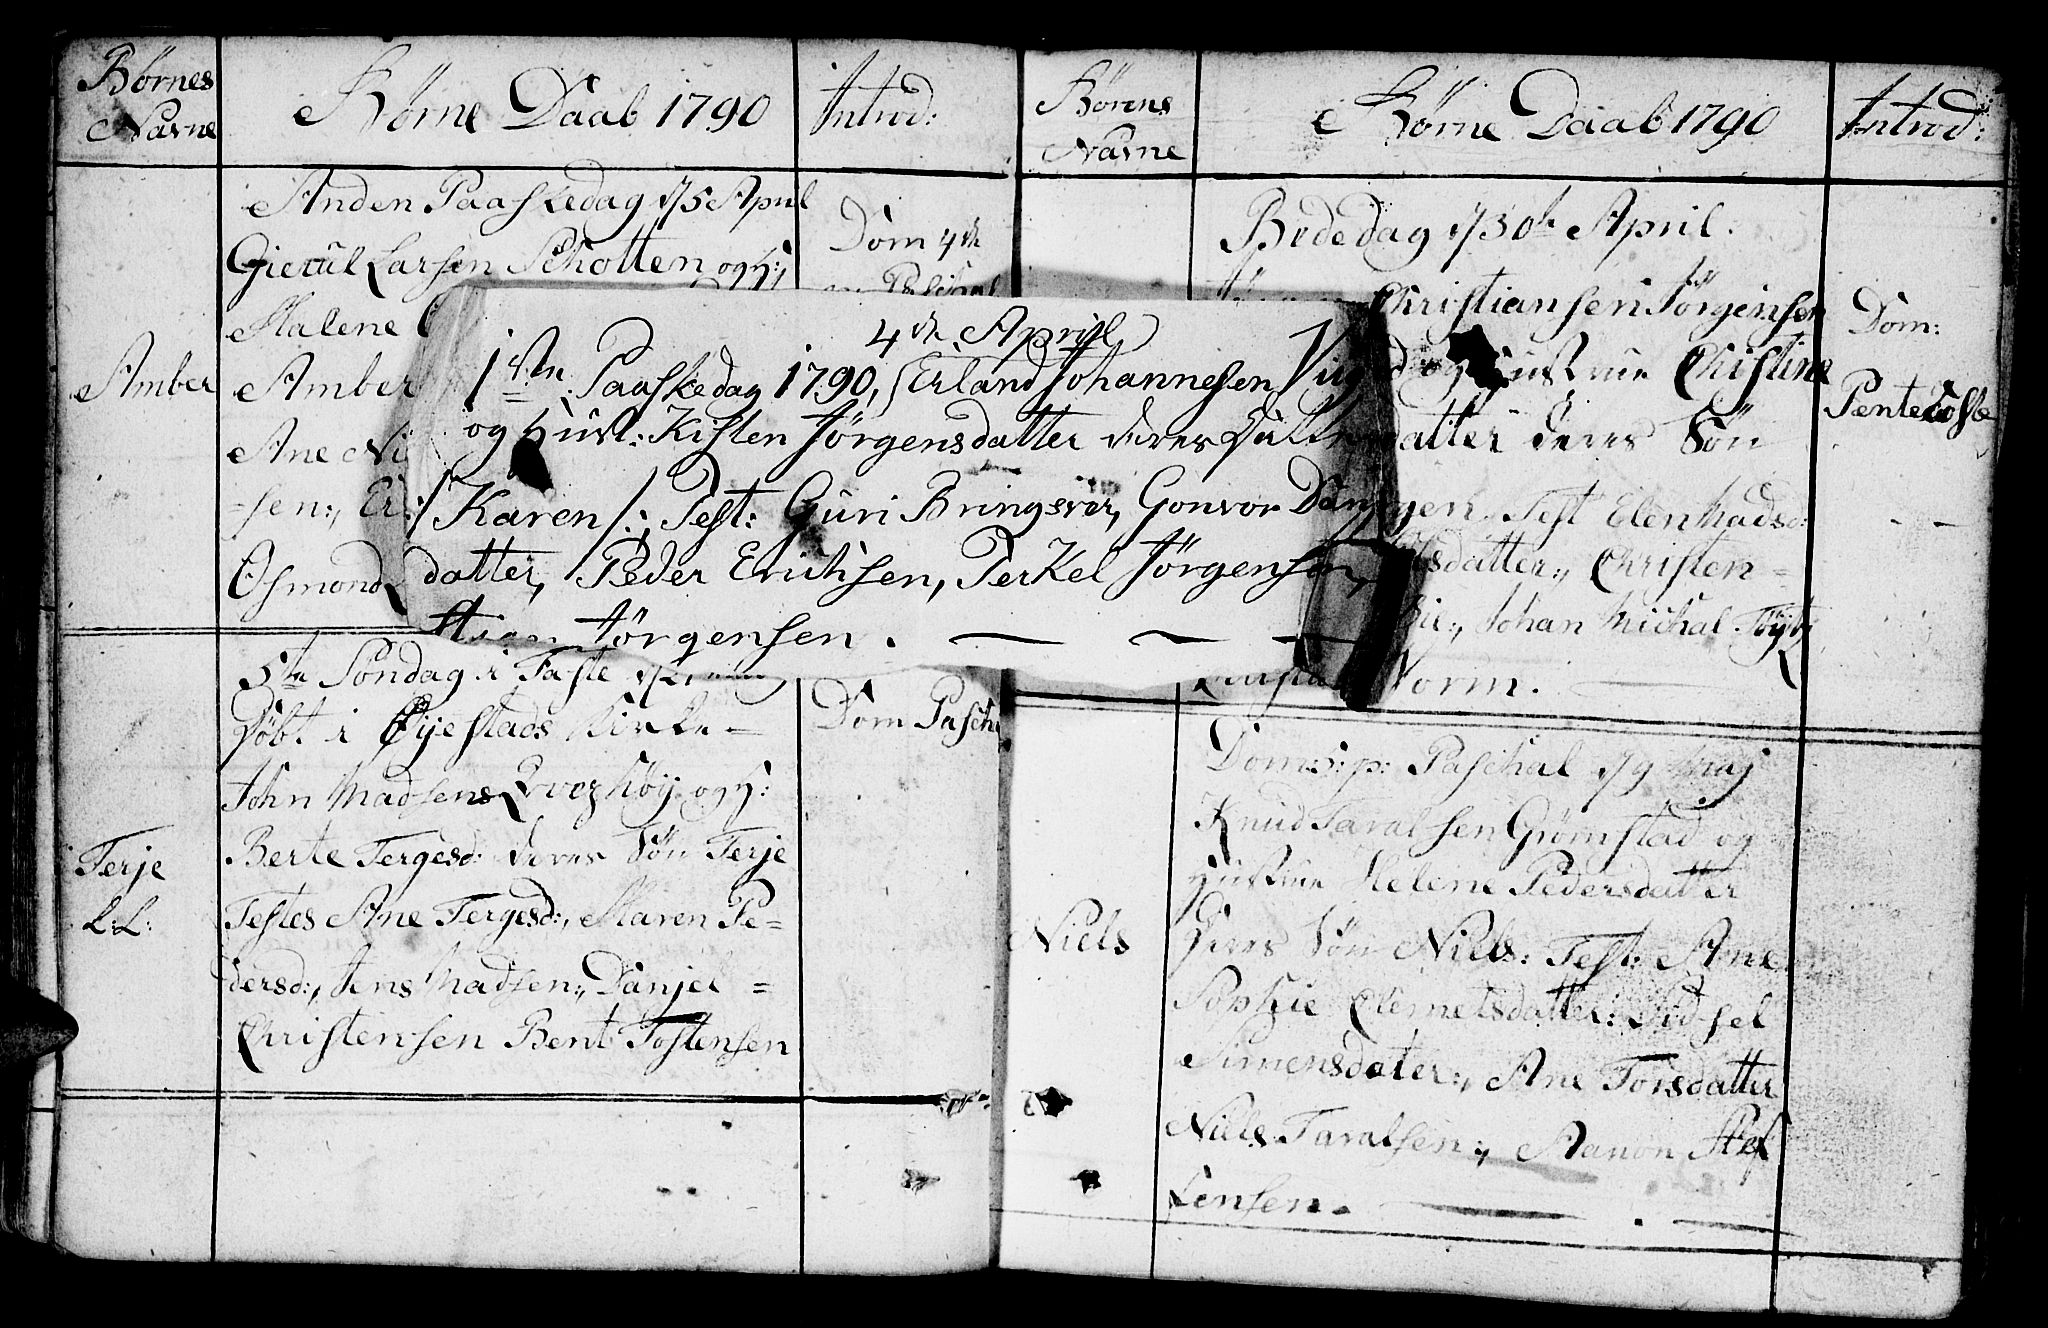 Børnes
Navne
Børne Daab 1790
Introd:
Anden Paaskedag d. 5 April
Gieruul Larsen Schotten og H:
Malene
Amber
Amber
Ane Ni
-sen:, Er
Osmond
Dom 4de
p: Paschal
4de April
1ste Paaskedag 1790, Erland Johannesen Viig
og Hust: Kisten Jørgensdatter deres Datter
/: Karen :/ Test: Guri Bringsver, Gonvor Dan
datter, Peder Erichsen, Terkel Jørgensen,
Stian Jørgensen.
5te Søndag i Faste
Døbt i Øyestads Kirke
John Madsens og H:
Berte Tergesd: deres Søn Terje
Terje
L:L:
Testes Ane Tergesd:, Maren Pe=
dersd:, Jens Madsen:, Danjel =
Christensen Bent Tostensen
Dom Pasch
Børnes
Navne
Børne Daab 1790
Introd:
Bededag d. 30te April.
Christiansen Jørgensen
og Hustrue Christine
datter deres Søn
gen Test Elen Madsd:
datter:, Christen =
Johan Michal
Worm.
Dom:
Pentecoste
Dom: 5: p: Paschal d. 9 Maj
Knud Taralsen Grømstad og
Hustrue Helene Pedersdatter
Niels
deres Søn Niels: Test: Ane
Sophie Clemetsdatter: Sidsel
Simensdater:, Ane Torsdatter
Niels Taralsen:, Aanon Stef
fensen.